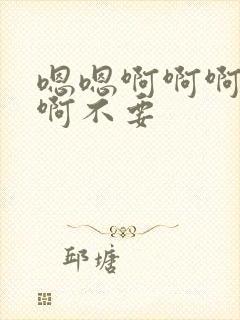 嗯嗯啊啊啊
啊不要
邱塘